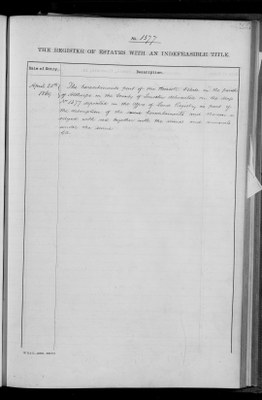 No. 1577
THE REGISTER OF ESTATES WITH AN INDEFEASIBLE TITLE.
Date of Entry.
Description.
April 20th
1869
The hereditaments part of the in the parish
of in the County of Lincoln delineated on the Map
No 1577 deposited in the office of Land Registry as part of
the description of the same hereditaments and thereon
edged with red together with the mines and minerals
under the same